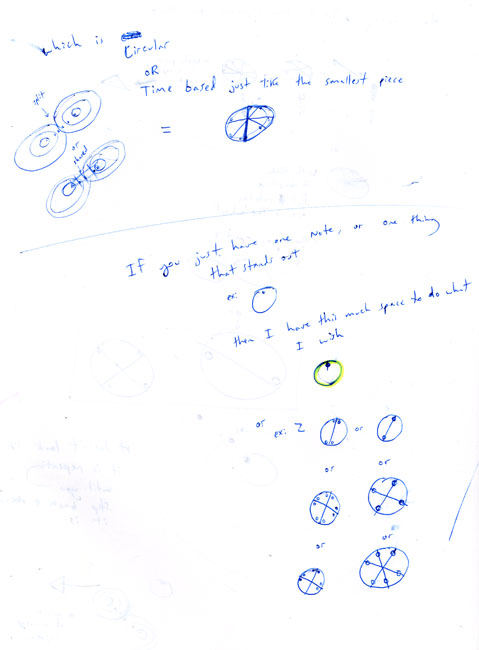 which is
Circular
OR
Time based just like the smallest piece
split
=
or
shared
If you just have one note, or one thing
that stands out
ex:
then I have this much space to do what
I wish
or ex: 2 or
or or
or or